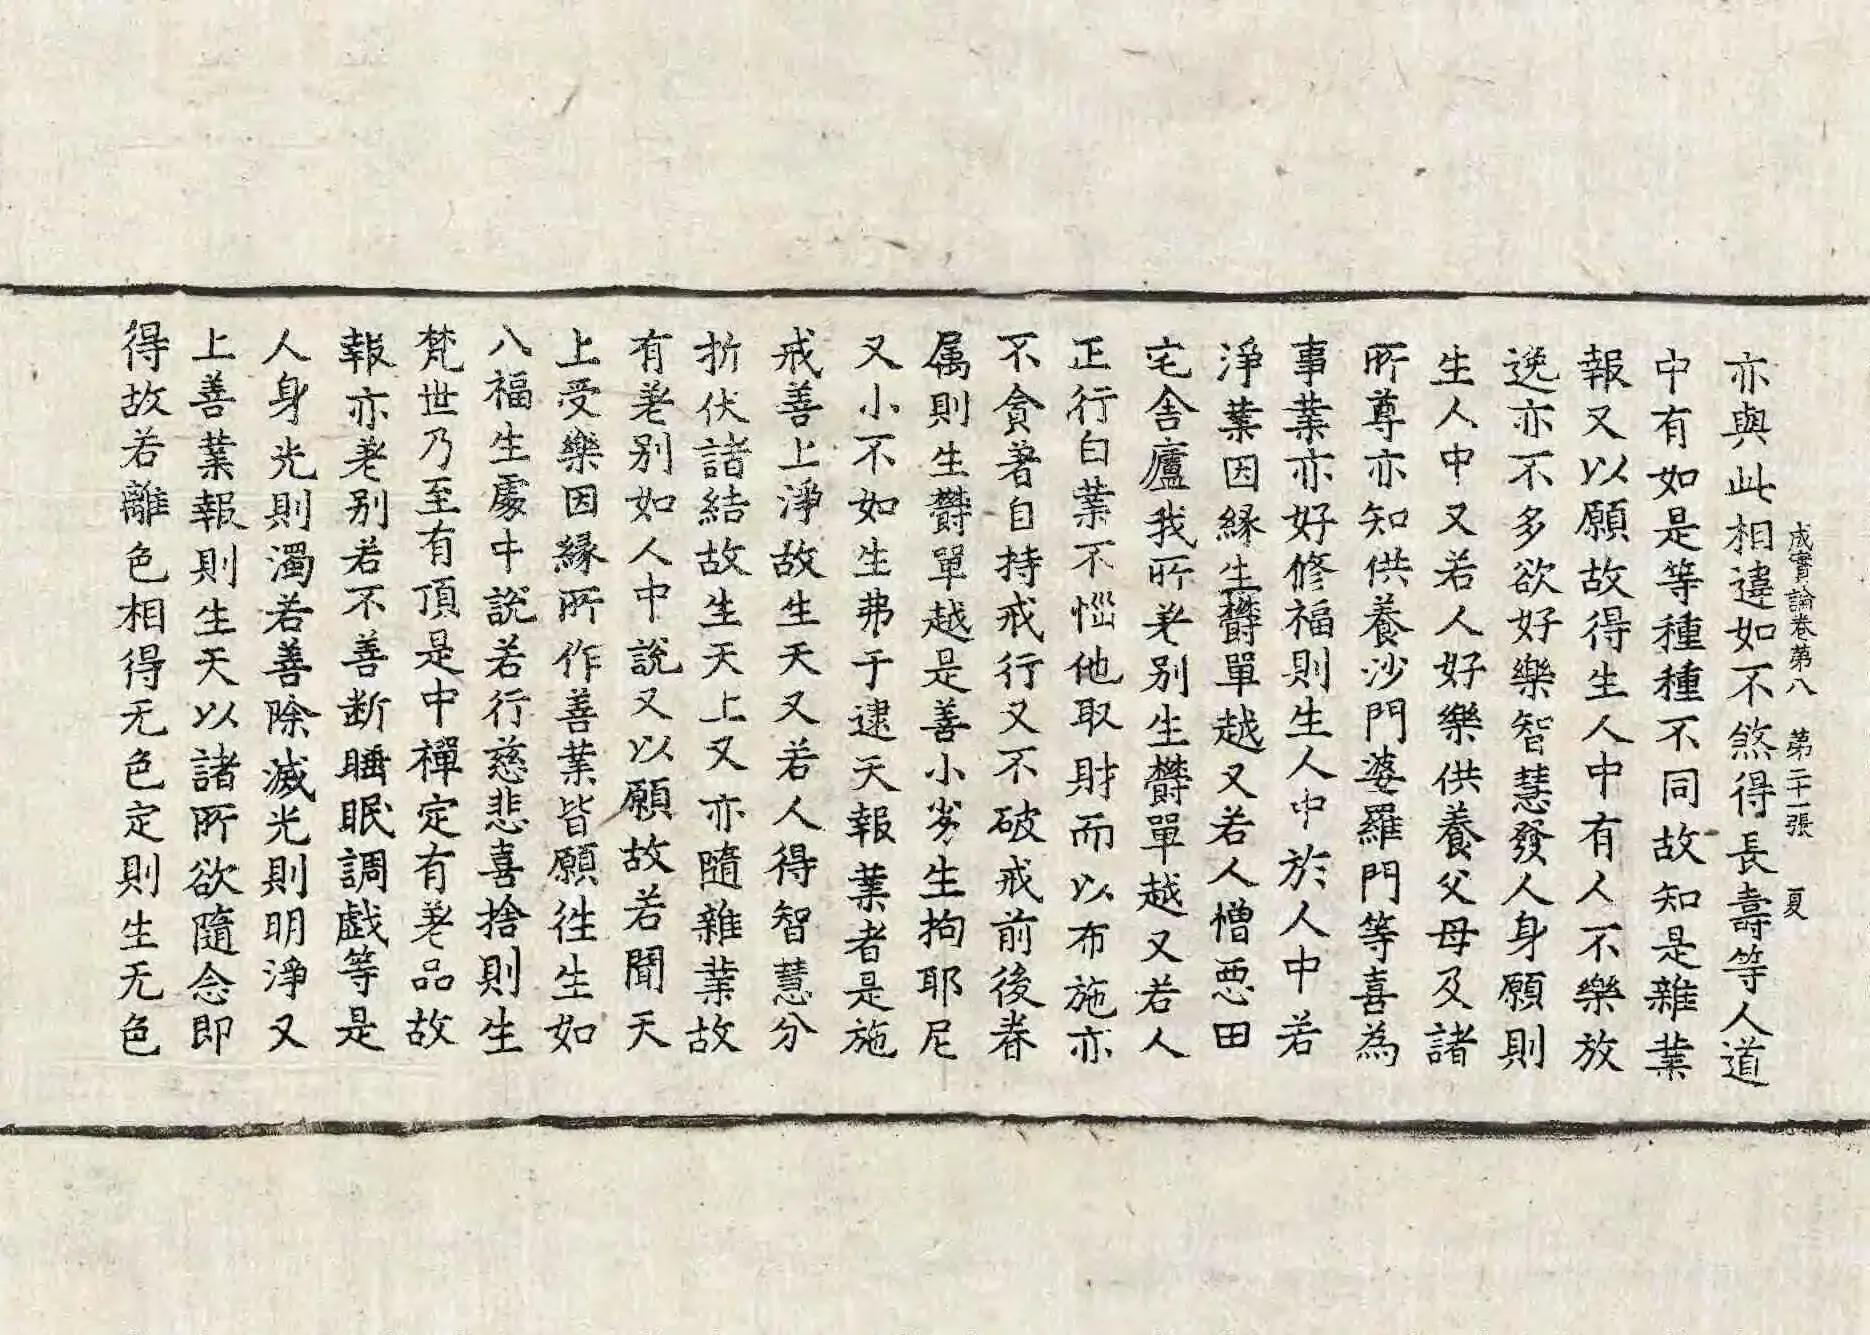 成實論卷苐八　苐二十一張　夏
亦與此相違如不煞得長壽等人道
中有如是等種種不同故知是雜業
報又以願故得生人中有人不樂放
逸亦不多欲好樂智慧發人身願則
生人中又若人好樂供養父母及諸
所尊亦知供養沙門婆羅門等喜為
事業亦好修福則生人中於人中若
淨業因緣生欝單越又若人憎惡田
宅舍廬我所差別生欝單越又若人
正行白業不惱他取財而以布施亦
不貪著自持戒行又不破戒前後眷
属則生欝單越是善小劣生拘耶尼
又小不如生弗于逮天報業者是施
戒善上淨故生天又若人得智慧分
折伏諸結故生天上又亦隨雜業故
有差別如人中說又以願故若聞天
上受樂因緣所作善業皆願徃生如
八福生處中說若行慈悲喜捨則生
梵世乃至有頂是中禪定有差品故
報亦差別若不善断睡眠調戲等是
人身光則濁若善除滅光則明淨又
上善業報則生天以諸所欲隨念即
得故若離色相得无色定則生无色